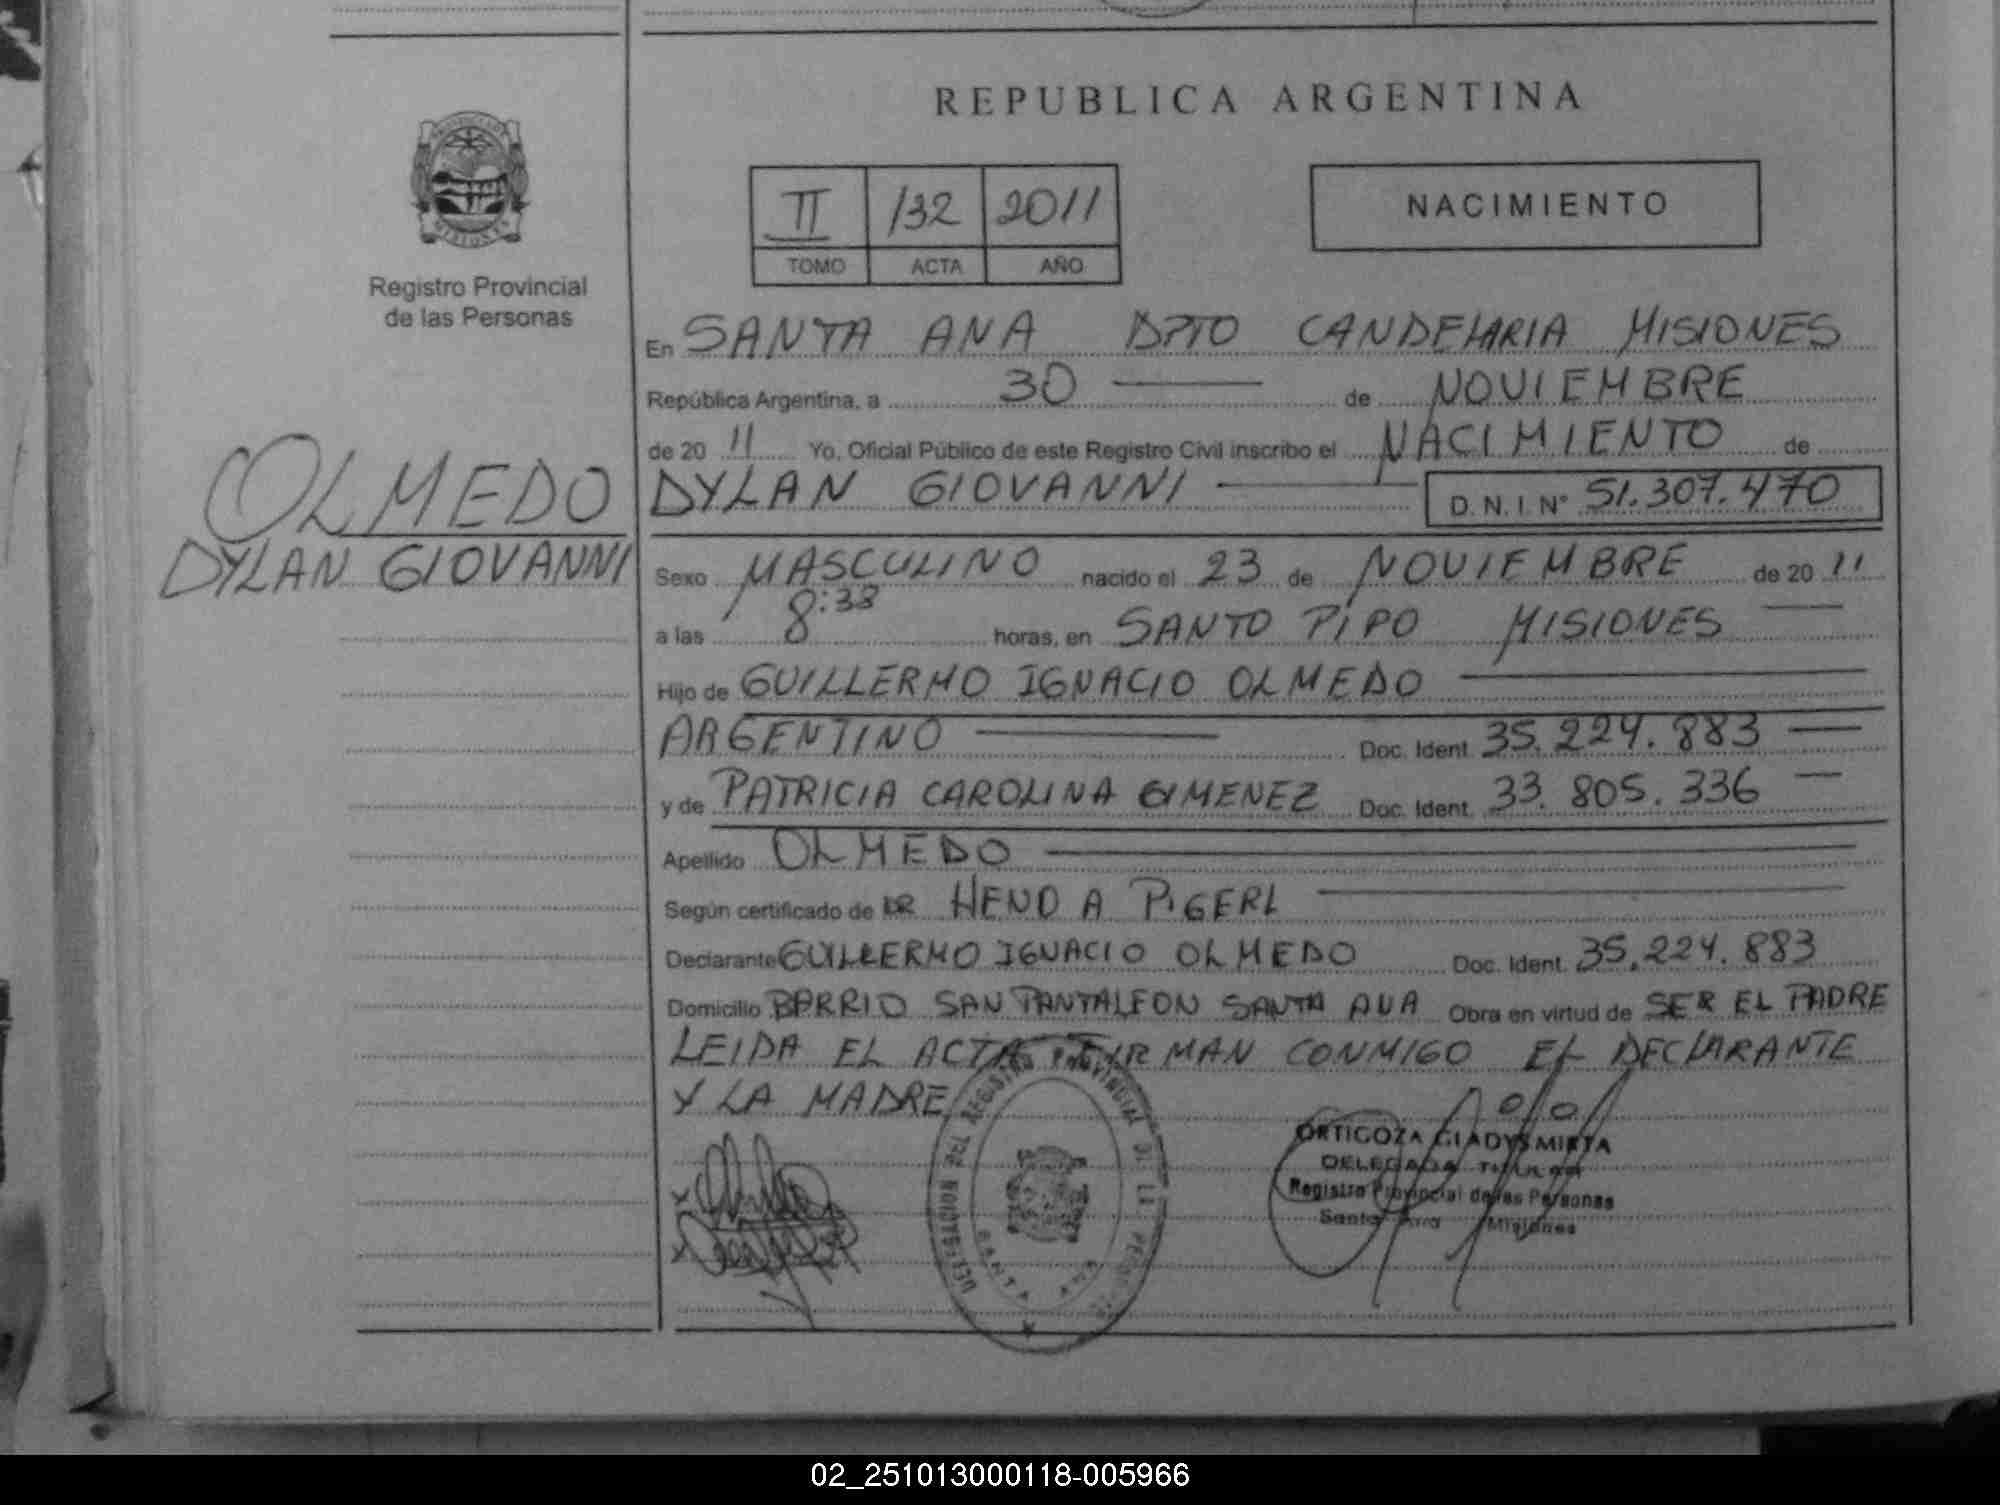 REPUBLICA ARGENTINA
II /32 2011
TOMO ACTA AÑO
NACIMIENTO
MISIONES
Registro Provincial
de las Personas
OLMEDO
DYLAN GIOVANNI
En SANTA ANA DPTO CANDELARIA MISIONES
República Argentina, a 30 de NOVIEMBRE
de 20 11 Yo, Oficial Público de este Registro Civil inscribo el NACIMIENTO de
DYLAN GIOVANNI D. N. I. N° 51.307.470
Sexo MASCULINO nacido el 23 de NOVIEMBRE de 20 11
a las 8:33 horas, en SANTO PIPO MISIONES
Hijo de GUILLERMO IGNACIO OLMEDO
ARGENTINO Doc. Ident. 35.224.883
y de PATRICIA CAROLINA GIMENEZ Doc. Ident. 33.805.336
Apellido OLMEDO
Según certificado de DR HEND A PIGERL
Declarante GUILLERMO IGNACIO OLMEDO Doc. Ident. 35.224.883
Domicilio BARRIO SAN PANTALEON SANTA ANA Obra en virtud de SER EL PADRE
LEIDA EL ACTA FIRMAN CONMIGO EL DECLARANTE
Y LA MADRE
REGISTRO PROVINCIAL DE
SANTA ANA
ORTIGOZA GLADYS MIRTA
DELEGADA TITULAR
Registro Provincial de las Personas
Santa Ana Misiones
02_251013000118-005966